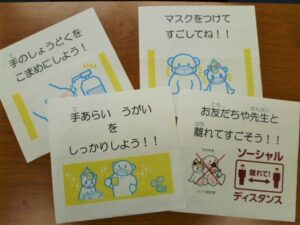 手のしょうどくを
こまめにしよう！
マスクをつけて
すごしてね！！
手あらい うがい
を
しっかりしよう！！
お友だちや先生と
離れてすごそう！！
ソーシャル
離れて!
ディスタンス